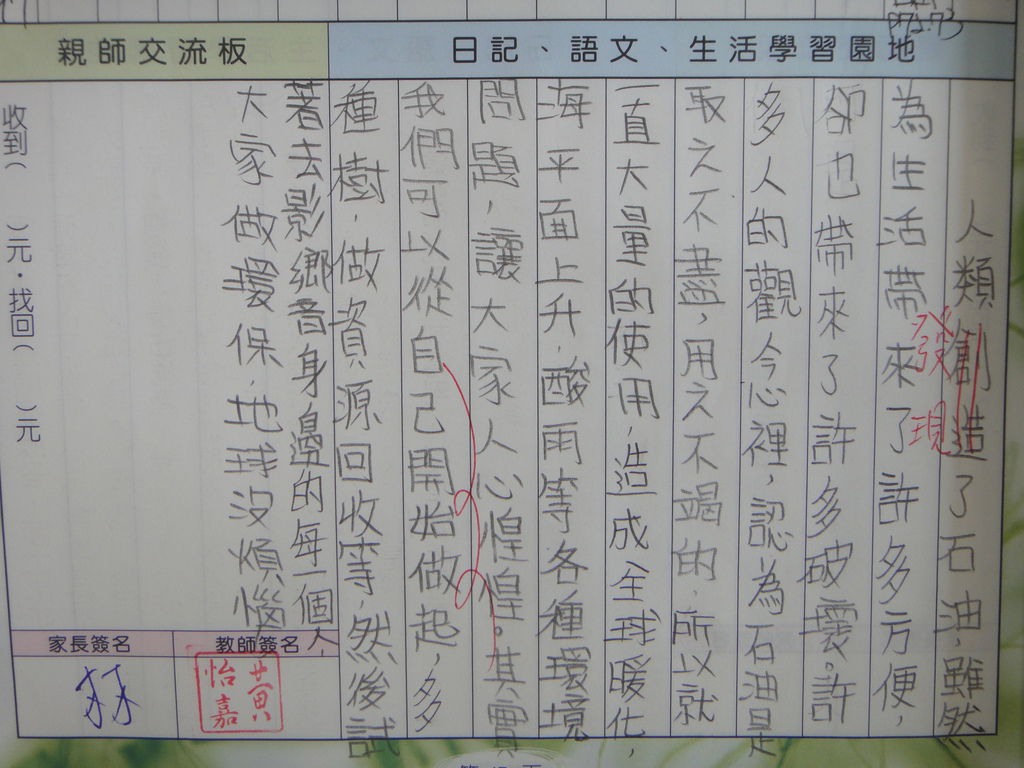 P72-73
日記、語文、生活學習園地
人類創造了石油，雖然
發現
為生活帶來了許多方便，
卻也帶來了許多破壞。許
多人的觀今心裡，認為石油是
取之不盡，用之不竭的，所以就
一直大量的使用，造成全球暖化，
海平面上升，酸雨等各種環境
問題，讓大家人心惶惶。其實
我們可以從自己開始做起，多
種樹，做資源回收等，然後試
著去影鄉音身邊的每一個人，
親師交流板
大家做環保，地球沒煩惱
收到( )元·找回( )元
教師簽名
黃怡嘉
家長簽名
林